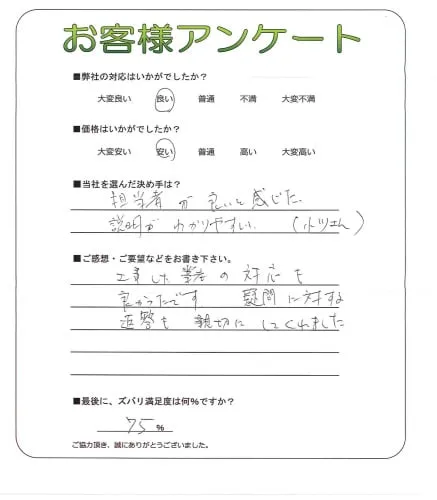 お客様アンケート
■弊社の対応はいかがでしたか？
大変良い 良い 普通 不満 大変不満
■価格はいかがでしたか？
大変安い 安い 普通 高い 大変高い
■当社を選んだ決め手は？
担当者が良いと感じた
説明がわかりやすい (小ツエん)
■ご感想・ご要望などをお書き下さい。
工事した業者の対応も
良かったです 疑問に対する
返答も親切にしてくれました
■最後に、ズバリ満足度は何％ですか？
75 ％
ご協力頂き、誠にありがとうございました。